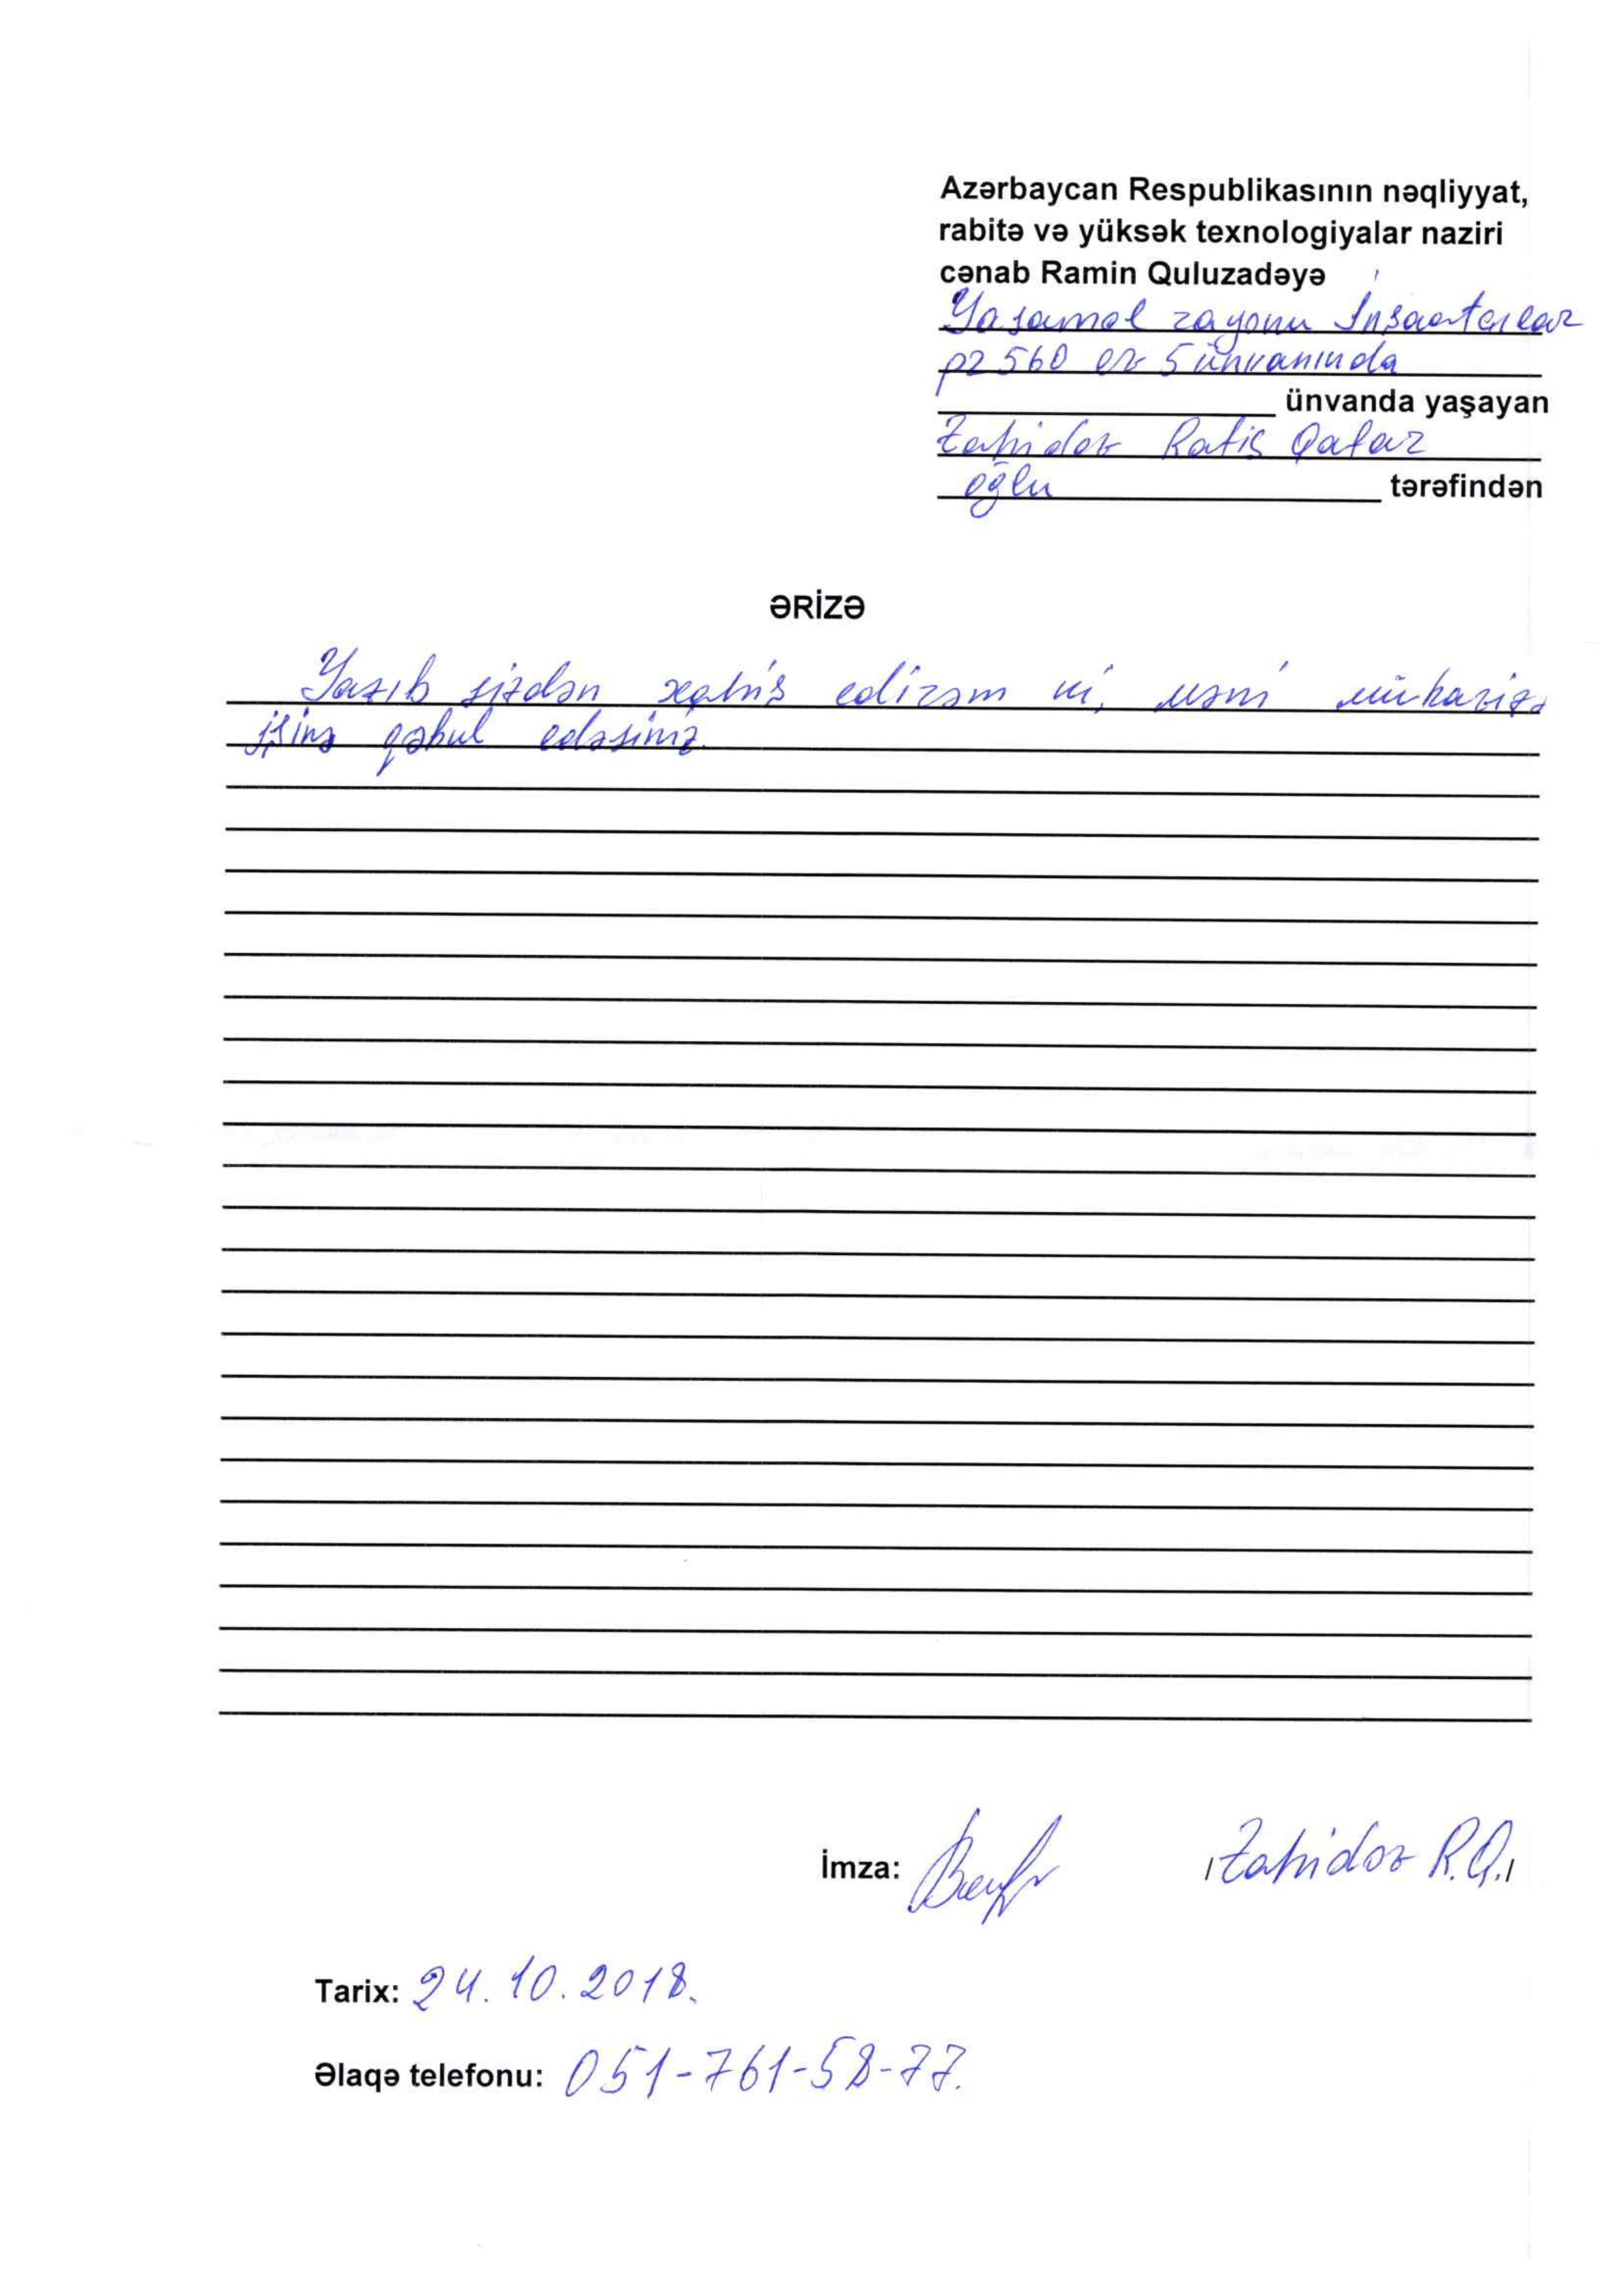 Azərbaycan Respublikasının nəqliyyat,
rabitə və yüksək texnologiyalar naziri
cənab Ramin Quluzadəyə
Yasamal rayonu İnşaatçılar
pr 560 ev 5 ünvanında
ünvanda yaşayan
Zahidov Rafis Qafar
oğlu tərəfindən
ƏRİZƏ
Yazıb sizdən xahiş edirəm ki, məni mühafizə
işinə qəbul edəsiniz.
İmza: /Zahidov R.Q./
Tarix: 24.10.2018.
Əlaqə telefonu: 051-761-58-77.